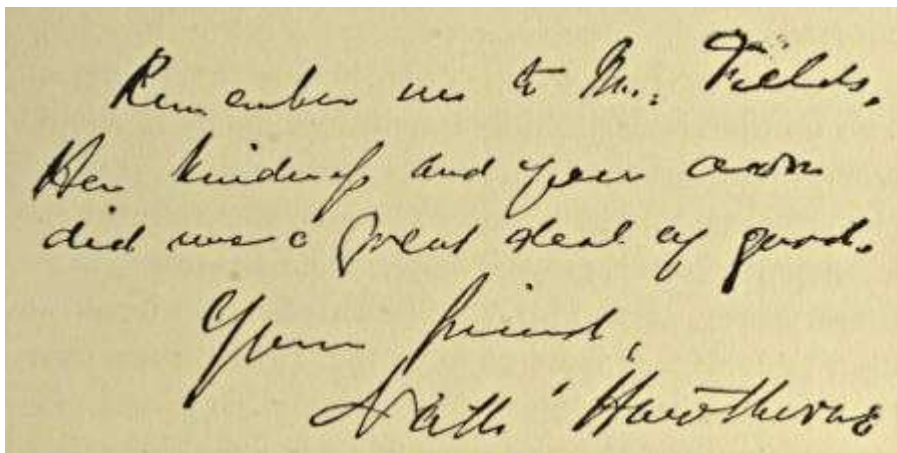 Remember me to Mrs. Fields.
Her kindness and your own
did me a great deal of good.
Your friend,
Nathl Hawthorne